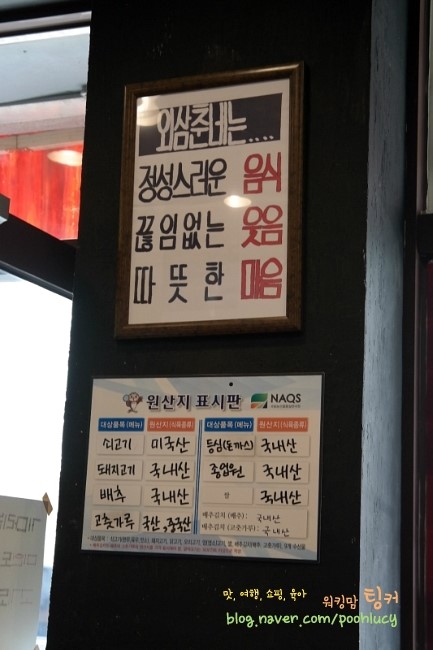 외삼촌네는....
정성스러운 음식
끊임없는 웃음
따뜻한 마음
원산지 표시판 NAQS
대상품목(메뉴) 원산지(식육종류) 대상품목(메뉴) 원산지(식육종류)
쇠고기 미국산 등심(돈까스) 국내산
돼지고기 국내산 종업원 국내산
배추 국내산 쌀 국내산
고춧가루 국산,중국산 배추김치(배추): 국내산
배추김치(고춧가루): 국내산
맛, 여행, 쇼핑, 육아 워킹맘 팅커
blog.naver.com/poohlucy